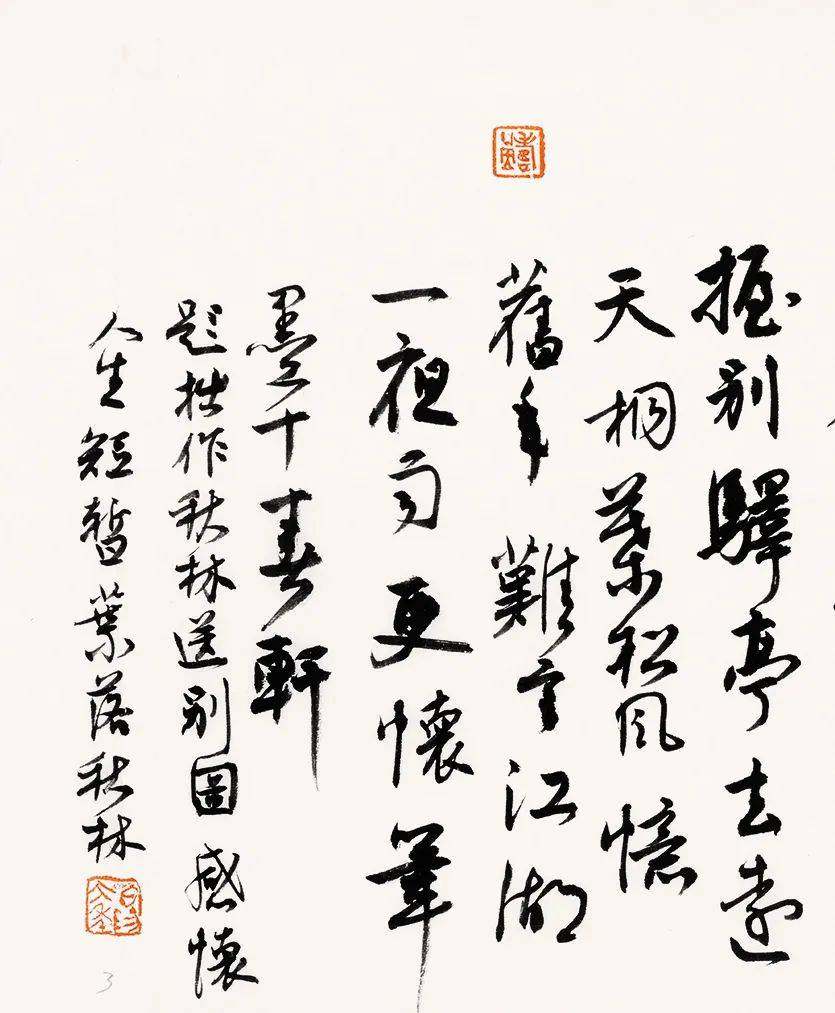 握别驛亭去遠
天桐葉松風憶
舊年難江湖
一夜雨更懷筆
墨十春軒
題拙作秋林送别圖感懷
人生短暫葉落秋林
3